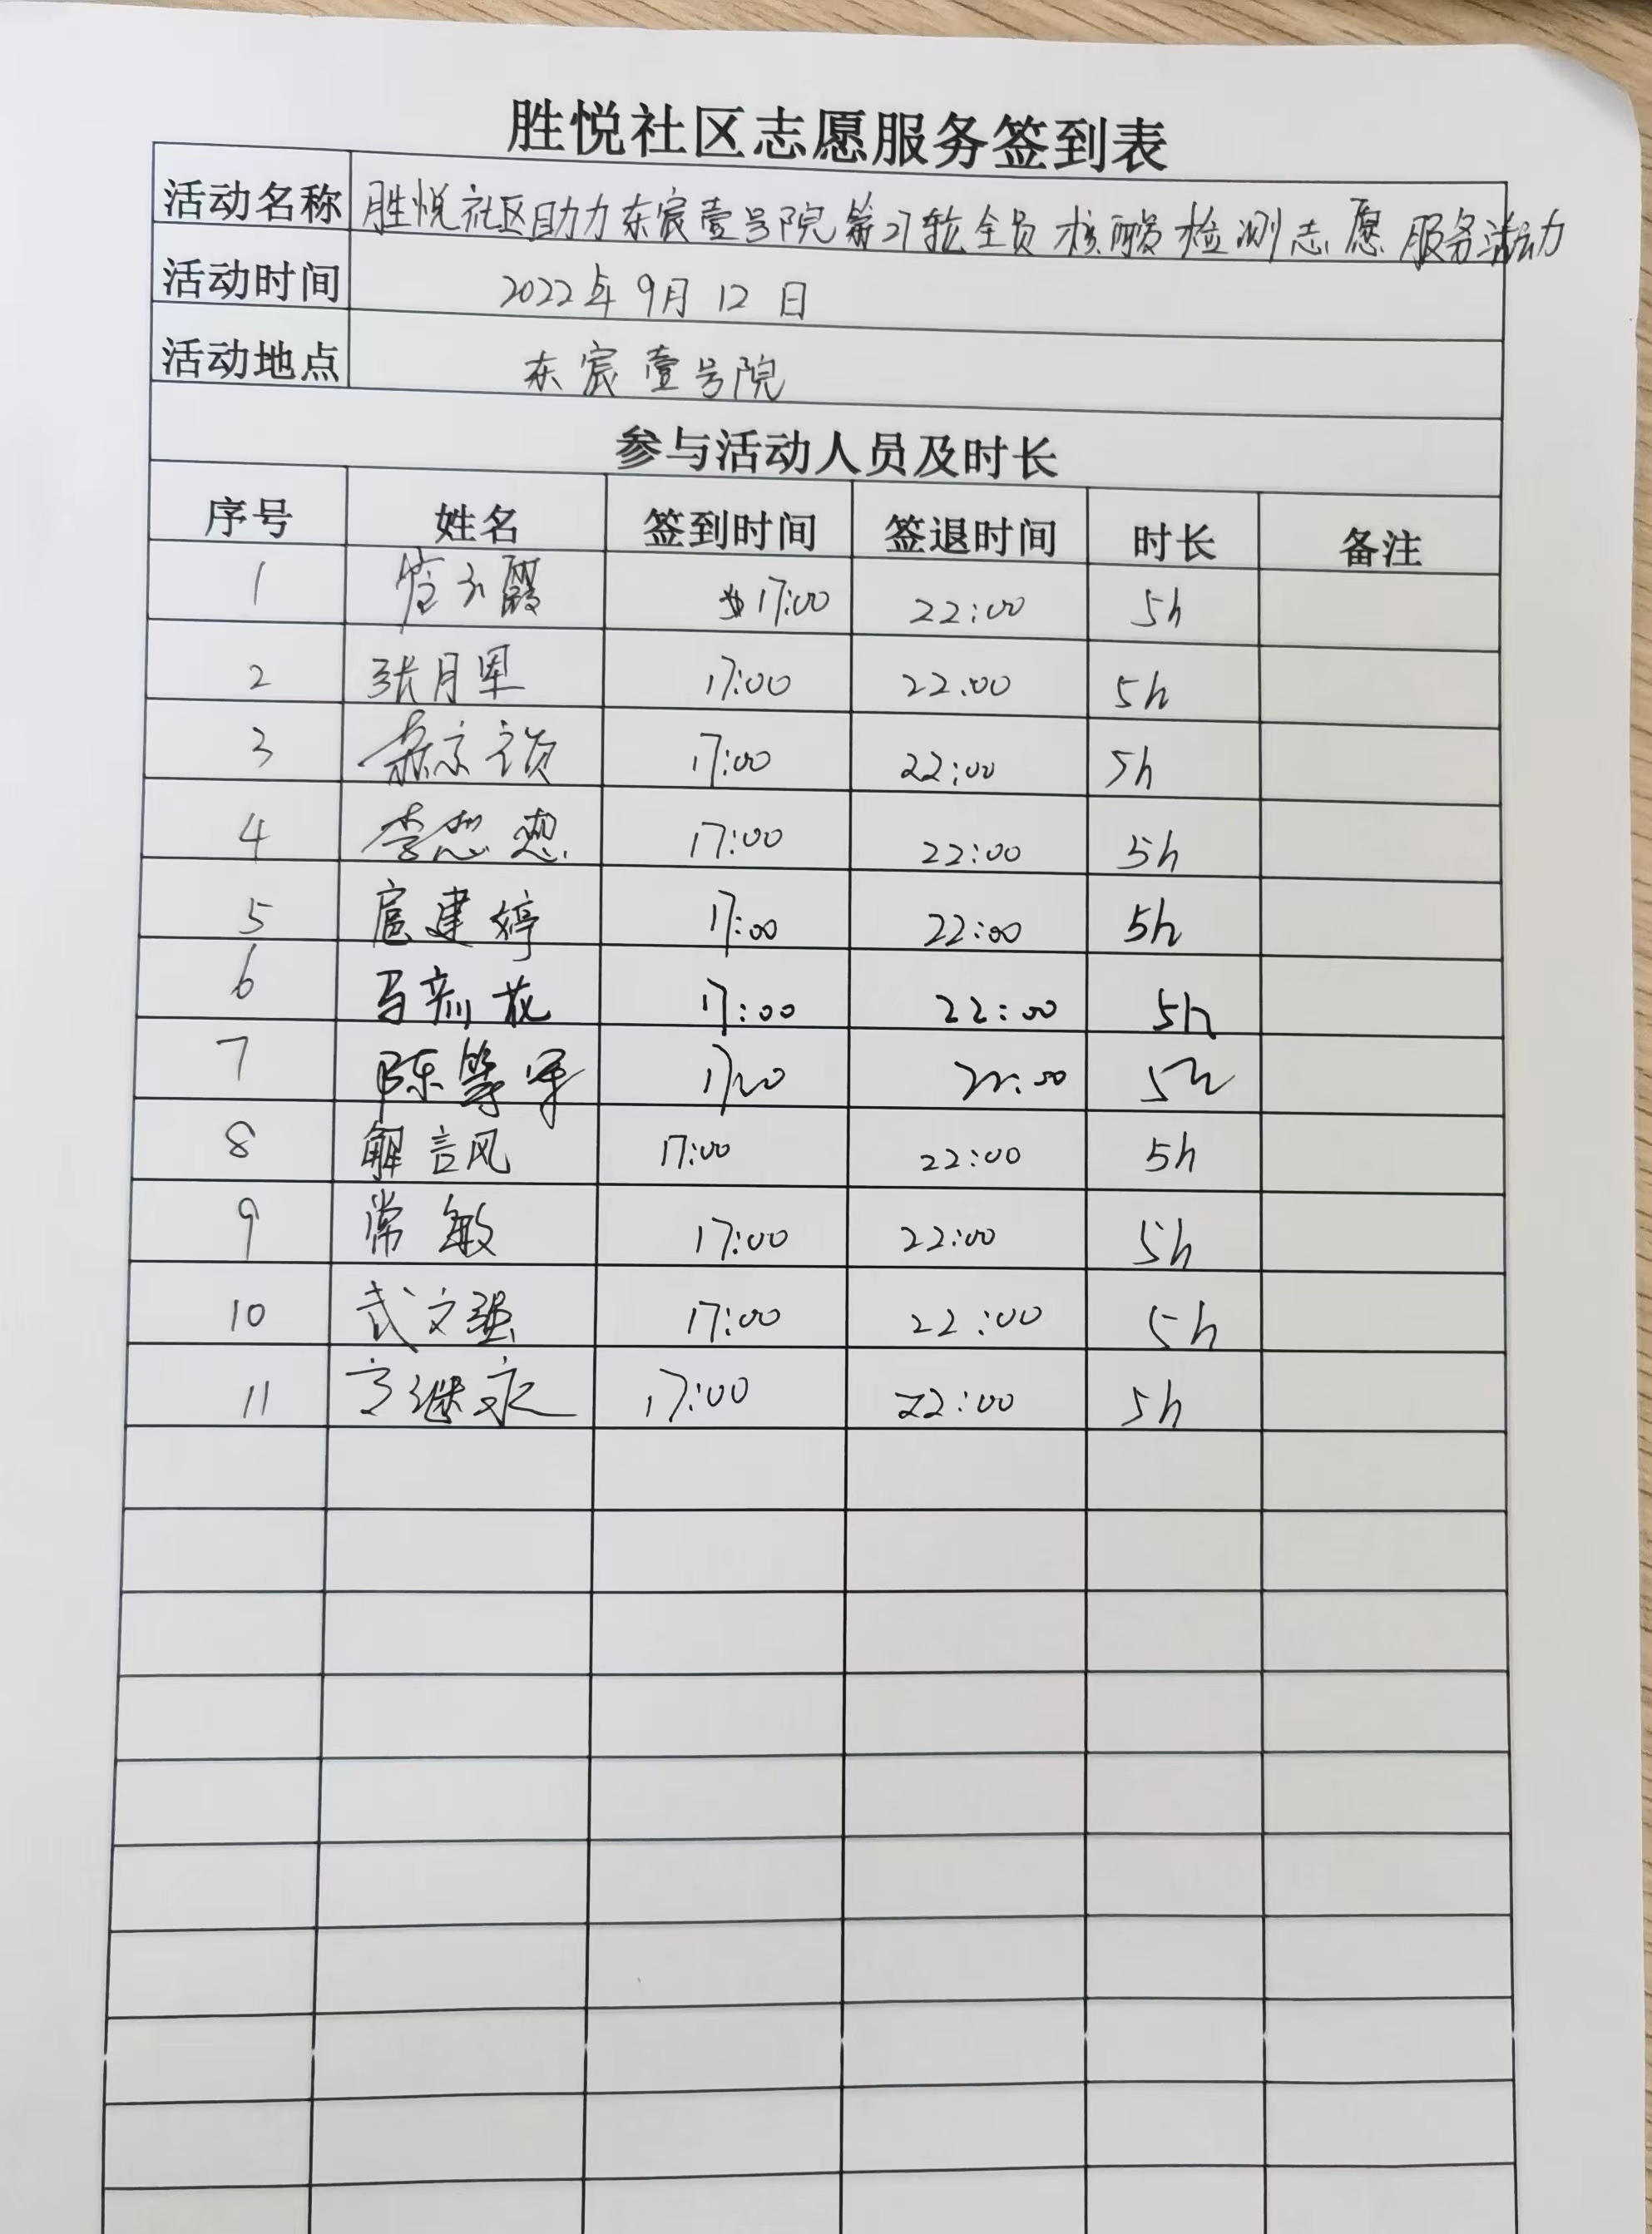 胜悦社区志愿服务签到表
活动名称 胜悦社区助力东宸壹号院第27轮全员核酸检测志愿服务活动
活动时间 2022年9月12日
活动地点 东宸壹号院
参与活动人员及时长
序号 姓名 签到时间 签退时间 时长 备注
1 17:00 22:00 5h
2 张月军 17:00 22:00 5h
3 17:00 22:00 5h
4 李想想 17:00 22:00 5h
5 扈建婷 17:00 22:00 5h
6 马 花 17:00 22:00 5h
7 陈 军 22:00 5h
8 解言风 17:00 22:00 5h
9 常敏 17:00 22:00 5h
10 武文强 17:00 22:00 5h
11 继永 17:00 22:00 5h